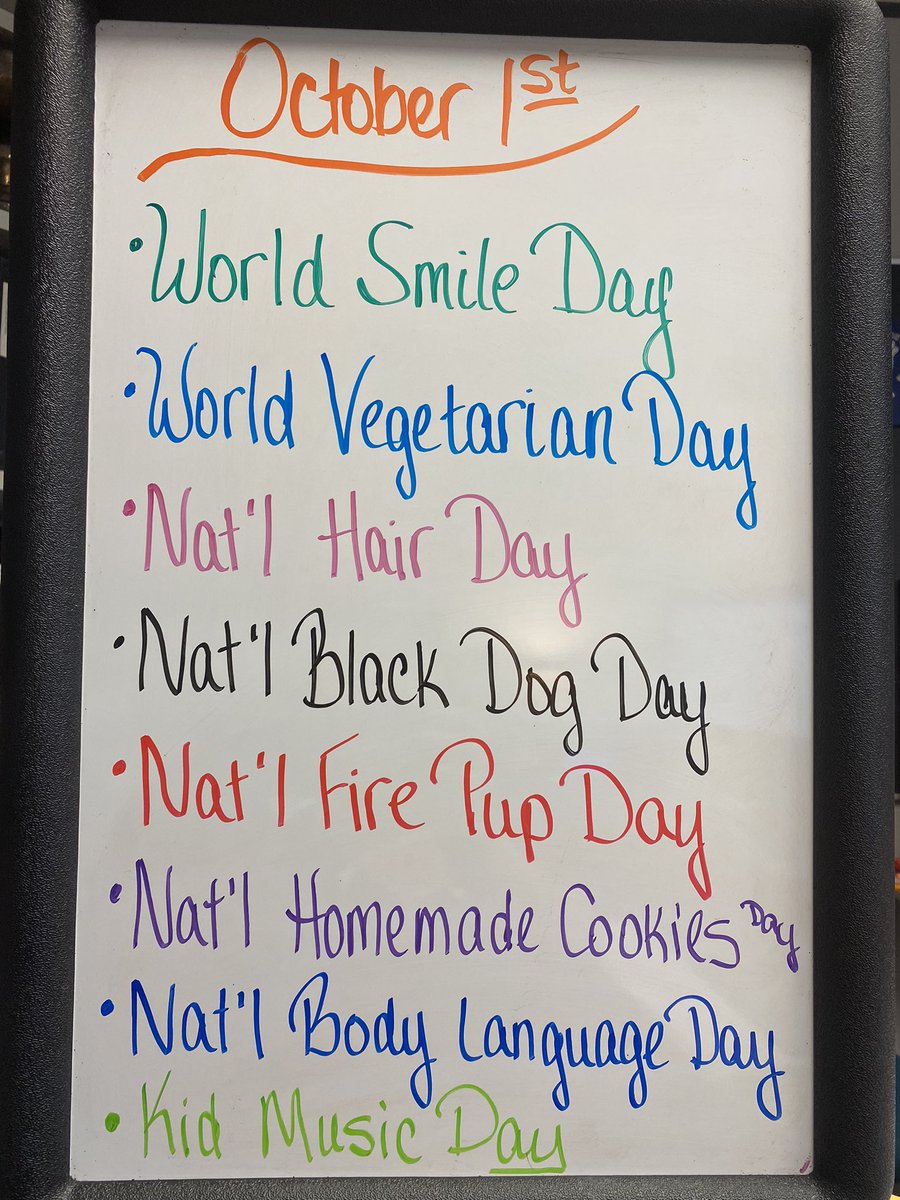 October 1st
• World Smile Day
• World Vegetarian Day
• Nat'l Hair Day
• Nat'l Black Dog Day
• Nat'l Fire Pup Day
• Nat'l Homemade Cookies Day
• Nat'l Body Language Day
• Kid Music Day